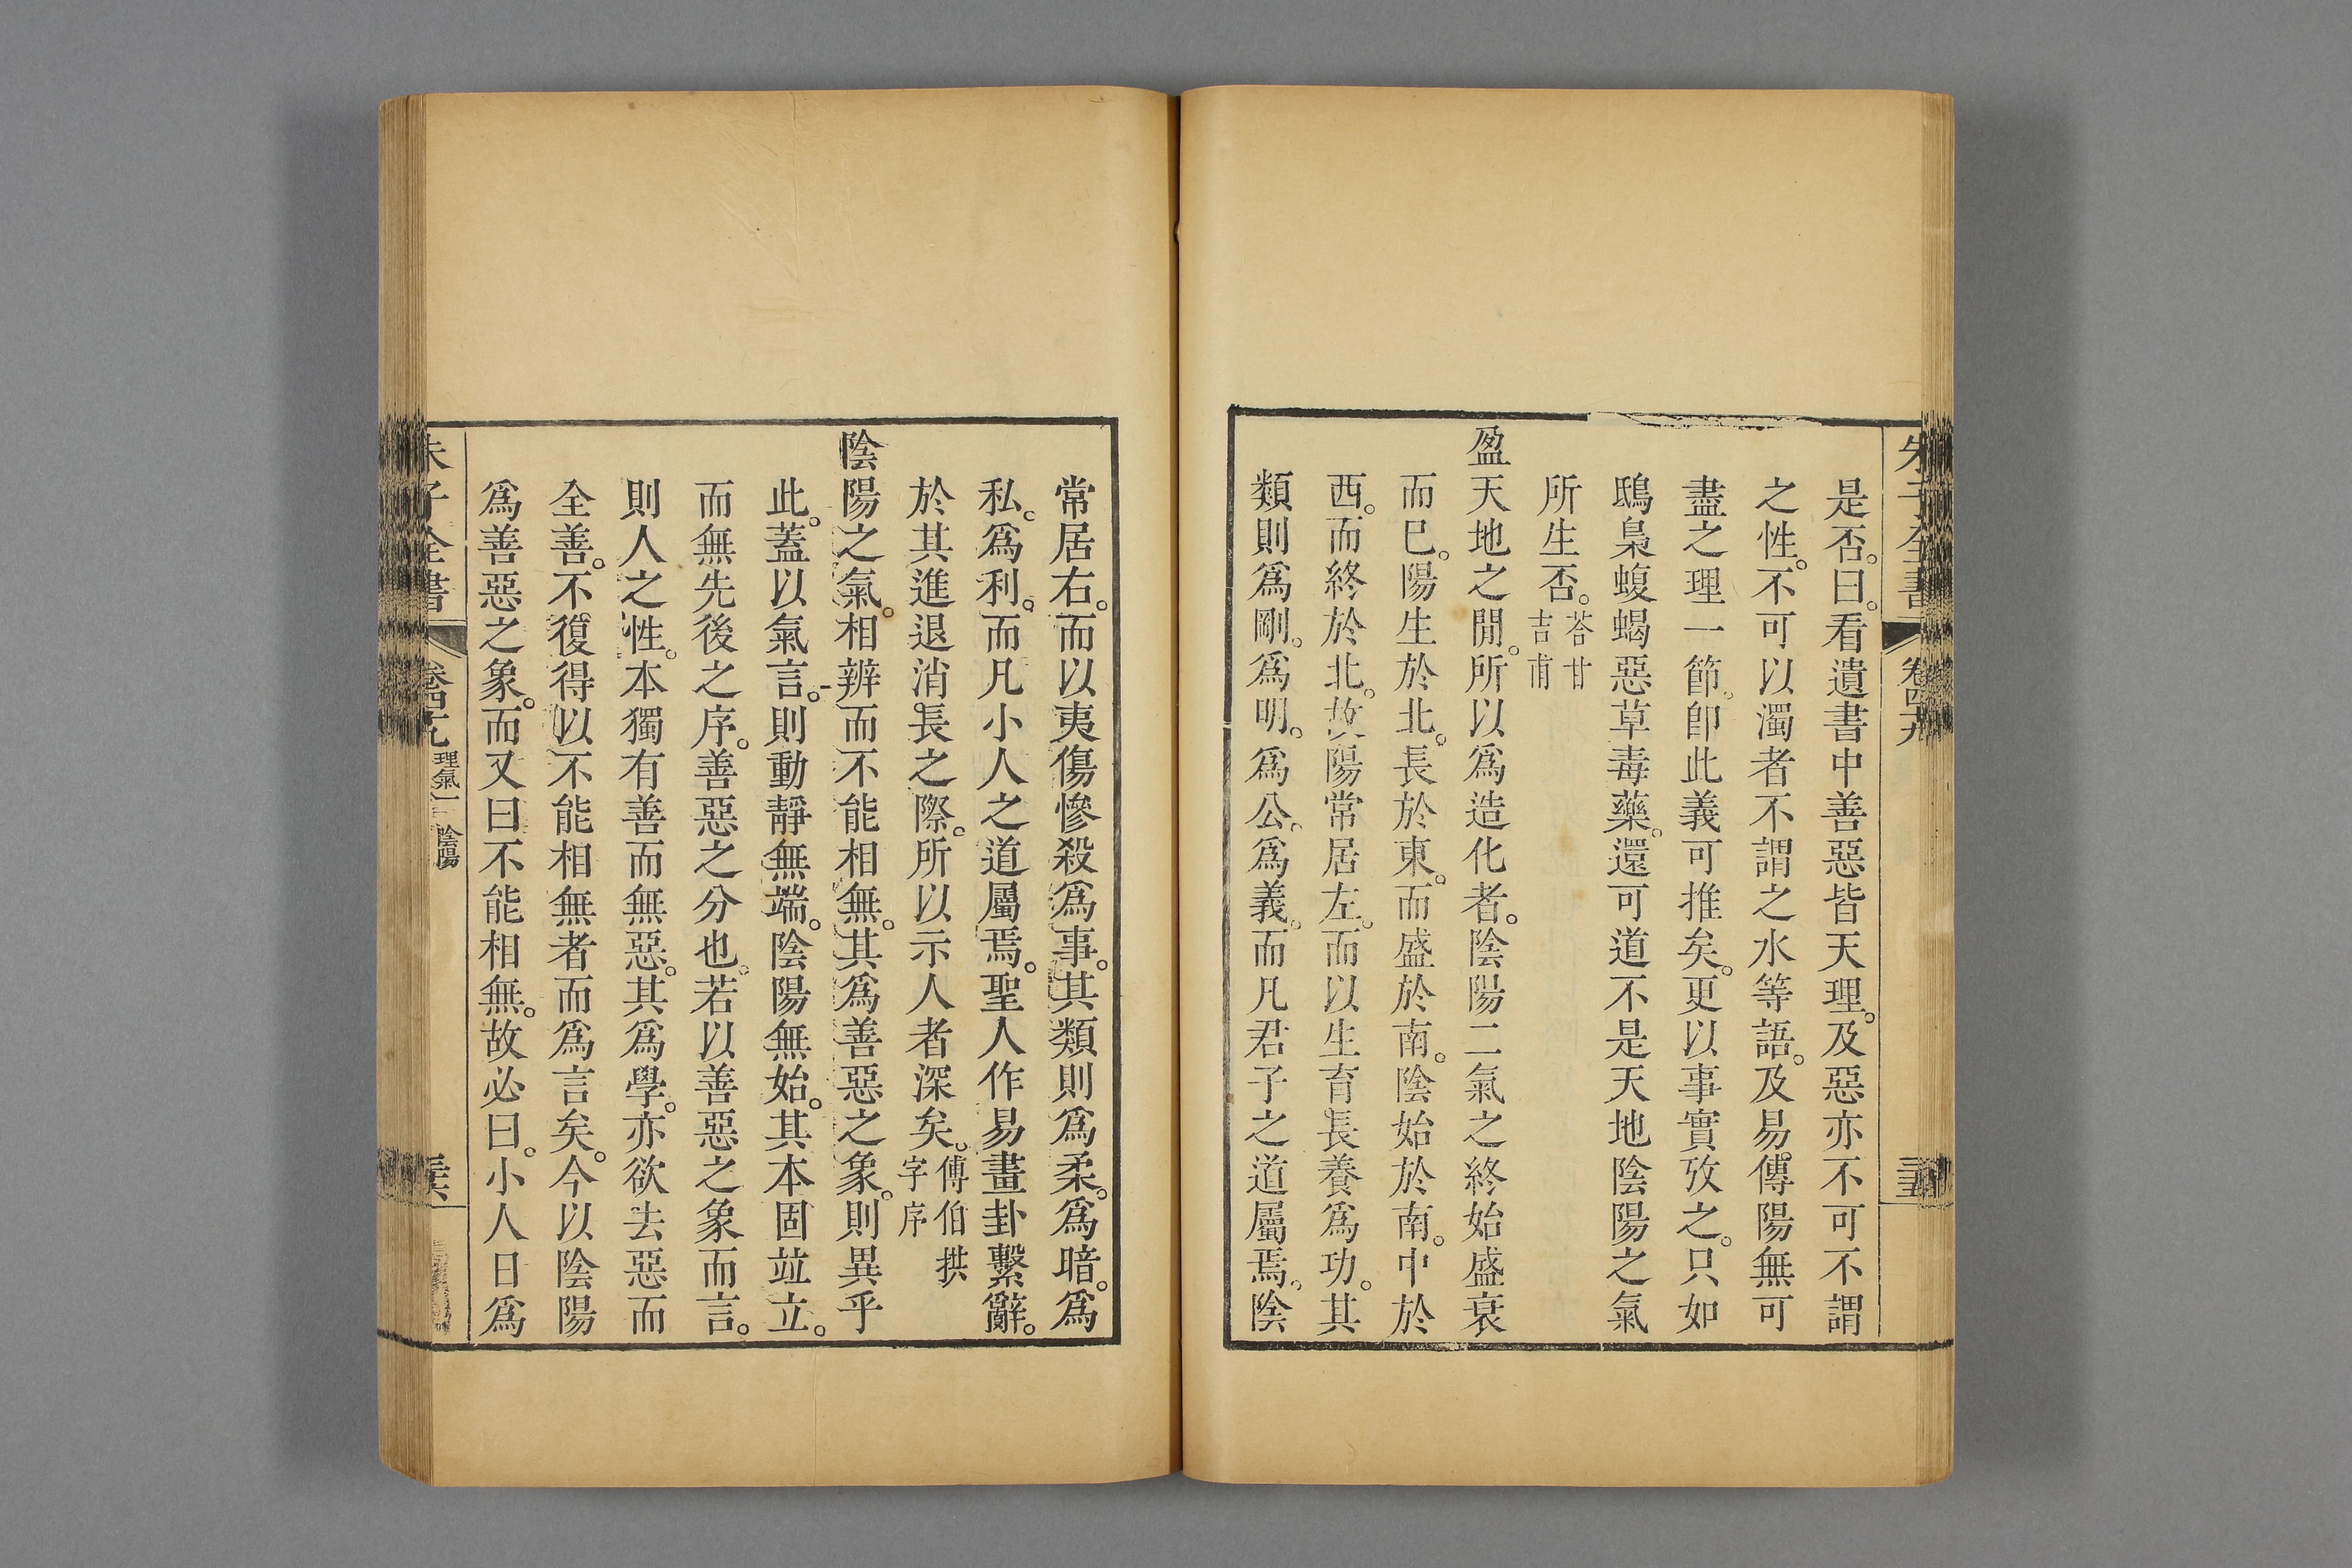 朱子全書 卷四十九
是否。曰。看遺書中善惡皆天理。及惡亦不可不謂
之性。不可以濁者不謂之水等語。及易傳陽無可
盡之理一節。卽此義可推矣。更以事實攷之。只如
鴟梟蝮蝎惡草毒藥。還可道不是天地陰陽之氣
所生否。答甘吉甫
盈天地之閒。所以爲造化者。陰陽二氣之終始盛衰
而已。陽生於北。長於東。而盛於南。陰始於南。中於
西。而終於北。故陽常居左。而以生育長養爲功。其
類則爲剛。爲明。爲公。爲義。而凡君子之道屬焉。陰
常居右。而以夷傷慘殺爲事。其類則爲柔。爲暗。爲
私。爲利。而凡小人之道屬焉。聖人作易畫卦繫辭。
於其進退消長之際。所以示人者深矣。傅伯拱字序
陰陽之氣。相辨而不能相無。其爲善惡之象。則異乎
此。蓋以氣言。則動靜無端。陰陽無始。其本固竝立。
而無先後之序。善惡之分也。若以善惡之象而言。
則人之性。本獨有善而無惡。其爲學。亦欲去惡而
全善。不復得以不能相無者而爲言矣。今以陰陽
爲善惡之象。而又曰不能相無。故必曰。小人日爲
朱子全書 卷四十九 理氣一 陰陽